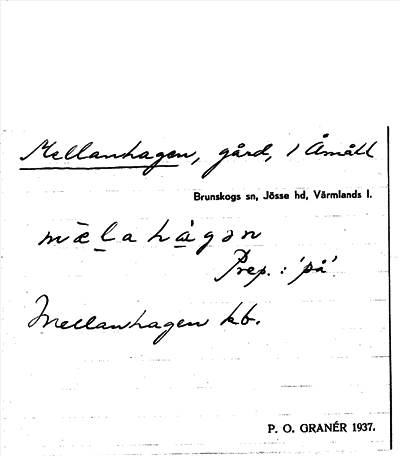 Mellanhagen, gård, 1 Åmått
Brunskogs sn, Jösse hd, Värmlands l.
mælahàgən
Prep.: 'på'
Mellanhagen kb.
P. O. GRANÉR 1937.